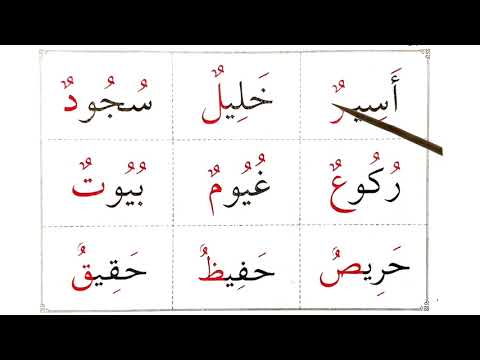 أَسِيرٌ خَلِيلٌ سُجُودٌ
رُكُوعٌ غُيُومٌ بُيُوتٌ
حَرِيصٌ حَفِيظٌ حَقِيقٌ